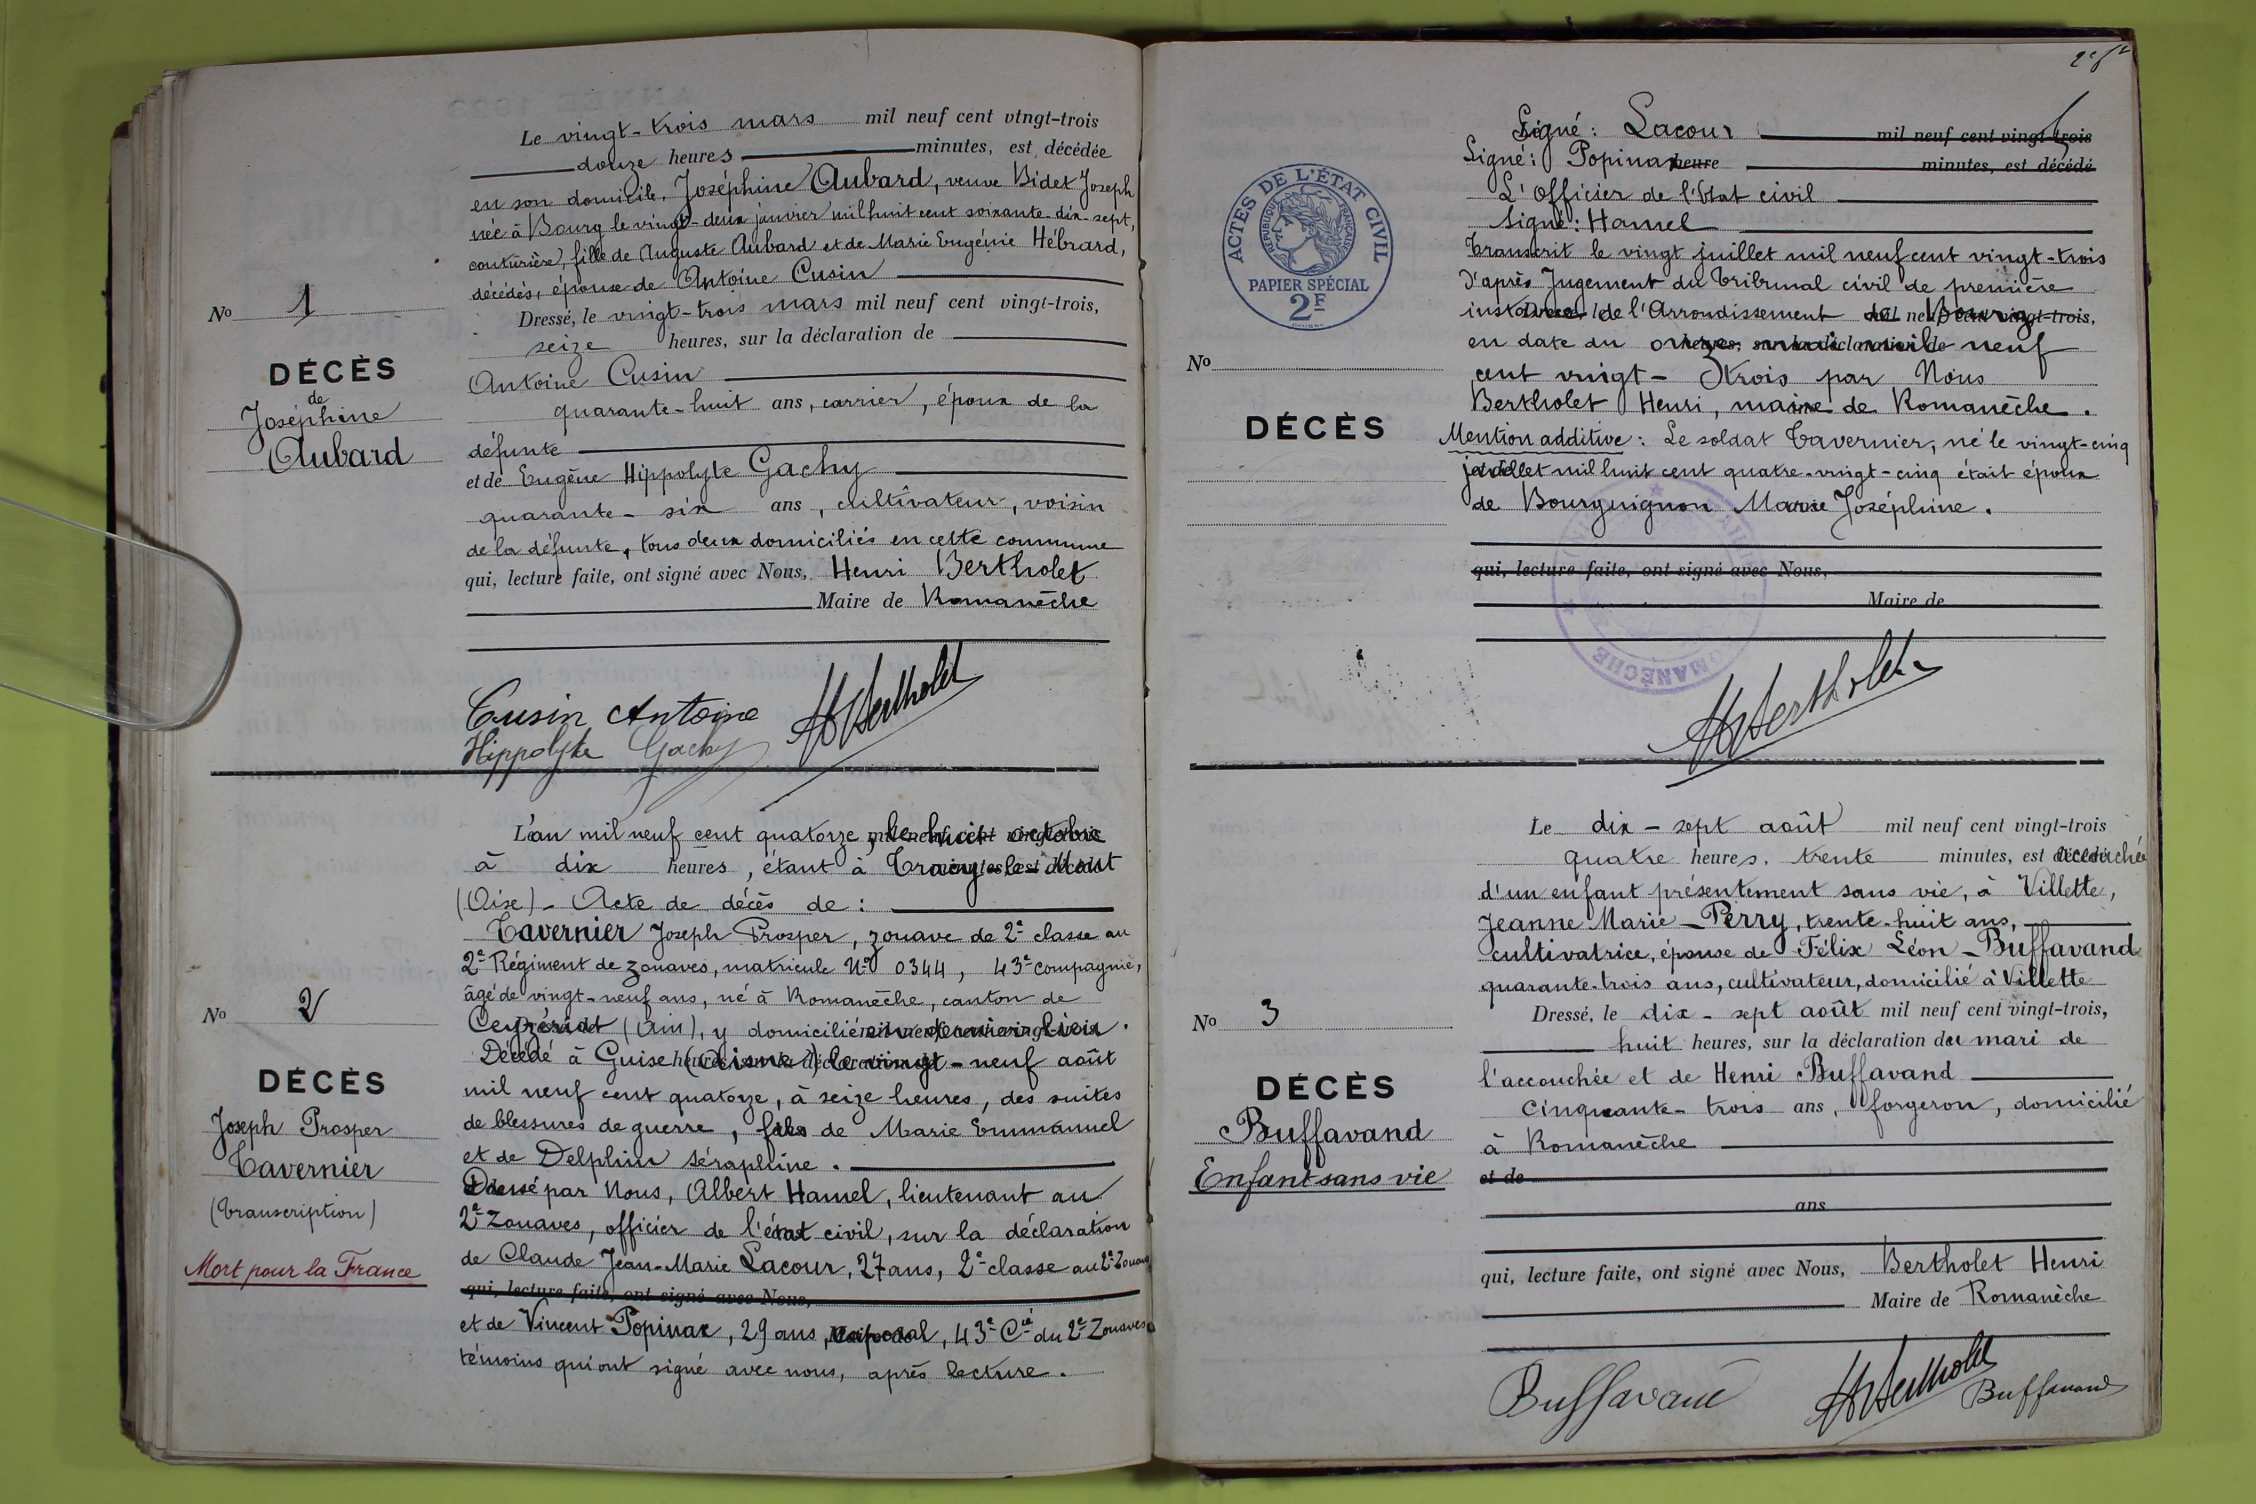 Le vingt-trois mars mil neuf cent vingt-trois
douze heures minutes, est décédée
en son domicile, Joséphine Aubard, veuve Bidet Joseph
née à Bourg le vingt-deux janvier mil huit cent soixante-dix-sept,
couturière, fille de Auguste Aubard et de Marie Eugénie Hébrard,
décédés, épouse de Antoine Cusin
No 1
DÉCÈS
de
Joséphine
Aubard
Dressé, le vingt-trois mars mil neuf cent vingt-trois,
seize heures, sur la déclaration de
Antoine Cusin
quarante-huit ans, carrier, époux de la
défunte
et de Eugène Hippolyte Gachy
quarante-six ans, cultivateur, voisin
de la défunte, tous deux domiciliés en cette commune
qui, lecture faite, ont signé avec Nous, Henri Bertholet
Maire de Romanèche
Cusin Antoine HBertholet
Hippolyte Gachy
L'an mil neuf cent quatorze, le huit octobre
à dix heures, étant à Tracy-le-Mont
(Oise) - Acte de décès de :
Tavernier Joseph Prosper, zouave de 2e classe au
2e Régiment de zouaves, matricule No 0344, 43e compagnie,
âgé de vingt-neuf ans, né à Romanèche, canton de
Ceyzériat (Ain), y domicilié en dernier lieu.
Décédé à Guise (Aisne) le vingt-neuf août
mil neuf cent quatorze, à seize heures, des suites
de blessures de guerre, fils de Marie Emmanuel
et de Delphin Séraphine.
No 2
DÉCÈS
Joseph Prosper
Tavernier
(Transcription)
Mort pour la France
Dressé par Nous, Albert Hamel, lieutenant au
2e Zouaves, officier de l'état civil, sur la déclaration
de Claude Jean-Marie Lacour, 27 ans, 2e classe au 2e Zouaves
qui, lecture faite, ont signé avec Nous,
et de Vincent Popinax, 29 ans, caporal, 43e Cie du 2e Zouaves
témoins qui ont signé avec nous, après lecture.
Signé : Lacour mil neuf cent vingt-trois
Signé : Popinax heure minutes, est décédé
L'Officier de l'Etat civil
Signé : Hamel
Transcrit le vingt juillet mil neuf cent vingt-trois
d'après Jugement du Tribunal civil de première
instance de l'Arrondissement de Bourg
en date du onze mai mil neuf
cent vingt-trois par Nous
Bertholet Henri, maire de Romanèche.
Mention additive : Le soldat Tavernier, né le vingt-cinq
juillet mil huit cent quatre-vingt-cinq était époux
de Bourguignon Marie Joséphine.
qui, lecture faite, ont signé avec Nous,
Maire de
ACTES DE L'ÉTAT CIVIL
RÉPUBLIQUE FRANÇAISE
PAPIER SPÉCIAL
2F
No
DÉCÈS
ROMANÈCHE
HBertholet
Le dix-sept août mil neuf cent vingt-trois
quatre heures, trente minutes, est accouchée
d'un enfant présentement sans vie, à Villette,
Jeanne Marie - Perry, trente-huit ans,
cultivatrice, épouse de Félix Léon - Buffavand
quarante-trois ans, cultivateur, domicilié à Villette
Dressé, le dix-sept août mil neuf cent vingt-trois,
huit heures, sur la déclaration du mari de
l'accouchée et de Henri Buffavand
cinquante-trois ans, forgeron, domicilié
à Romanèche
et de
ans
No 3
DÉCÈS
Buffavand
Enfant sans vie
qui, lecture faite, ont signé avec Nous, Bertholet Henri
Maire de Romanèche
Buffavand HBertholet Buffavand